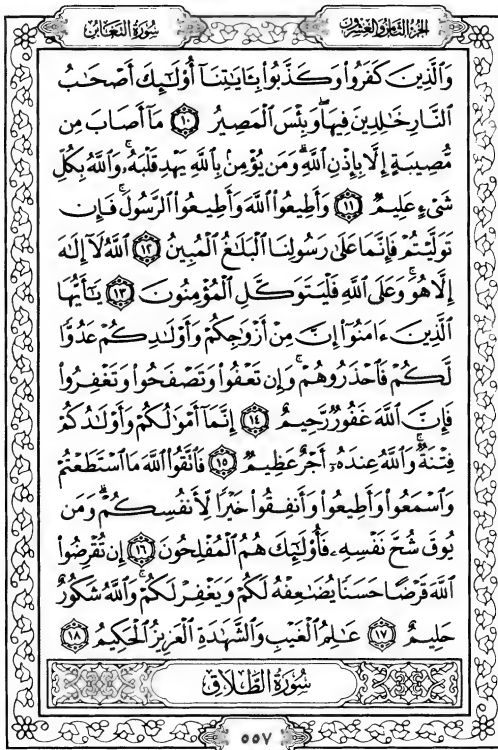 سُورَةُ التَّغَابُنِ الجُزْءُ الثَّامِنُ وَالعِشْرُونَ
وَٱلَّذِينَ كَفَرُوا۟ وَكَذَّبُوا۟ بِـَٔايَـٰتِنَآ أُو۟لَـٰٓئِكَ أَصْحَـٰبُ
ٱلنَّارِ خَـٰلِدِينَ فِيهَا ۖ وَبِئْسَ ٱلْمَصِيرُ ١٠ مَآ أَصَابَ مِن
مُّصِيبَةٍ إِلَّا بِإِذْنِ ٱللَّهِ ۗ وَمَن يُؤْمِنۢ بِٱللَّهِ يَهْدِ قَلْبَهُۥ ۚ وَٱللَّهُ بِكُلِّ
شَىْءٍ عَلِيمٌ ١١ وَأَطِيعُوا۟ ٱللَّهَ وَأَطِيعُوا۟ ٱلرَّسُولَ ۚ فَإِن
تَوَلَّيْتُمْ فَإِنَّمَا عَلَىٰ رَسُولِنَا ٱلْبَلَـٰغُ ٱلْمُبِينُ ١٢ ٱللَّهُ لَآ إِلَـٰهَ
إِلَّا هُوَ ۚ وَعَلَى ٱللَّهِ فَلْيَتَوَكَّلِ ٱلْمُؤْمِنُونَ ١٣ يَـٰٓأَيُّهَا
ٱلَّذِينَ ءَامَنُوٓا۟ إِنَّ مِنْ أَزْوَٰجِكُمْ وَأَوْلَـٰدِكُمْ عَدُوًّا
لَّكُمْ فَٱحْذَرُوهُمْ ۚ وَإِن تَعْفُوا۟ وَتَصْفَحُوا۟ وَتَغْفِرُوا۟
فَإِنَّ ٱللَّهَ غَفُورٌ رَّحِيمٌ ١٤ إِنَّمَآ أَمْوَٰلُكُمْ وَأَوْلَـٰدُكُمْ
فِتْنَةٌ ۚ وَٱللَّهُ عِندَهُۥٓ أَجْرٌ عَظِيمٌ ١٥ فَٱتَّقُوا۟ ٱللَّهَ مَا ٱسْتَطَعْتُمْ
وَٱسْمَعُوا۟ وَأَطِيعُوا۟ وَأَنفِقُوا۟ خَيْرًا لِّأَنفُسِكُمْ ۗ وَمَن
يُوقَ شُحَّ نَفْسِهِۦ فَأُو۟لَـٰٓئِكَ هُمُ ٱلْمُفْلِحُونَ ١٦ إِن تُقْرِضُوا۟
ٱللَّهَ قَرْضًا حَسَنًا يُضَـٰعِفْهُ لَكُمْ وَيَغْفِرْ لَكُمْ ۚ وَٱللَّهُ شَكُورٌ
حَلِيمٌ ١٧ عَـٰلِمُ ٱلْغَيْبِ وَٱلشَّهَـٰدَةِ ٱلْعَزِيزُ ٱلْحَكِيمُ ١٨
سُورَةُ الطَّلَاقِ
٥٥٧